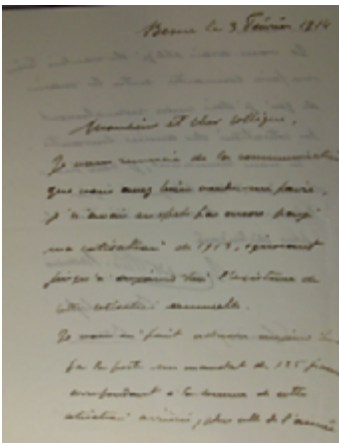 Berne le 3 Février 1914
Monsieur et cher collègue,
Je vous remercie de la communication
que vous avez bien voulu me faire.
Je n'avais en effet pas encore payé
ma cotisation de 1913, ignorant
jusqu'à aujourd'hui l'existence de
cette cotisation annuelle.
Je vous ai fait adresser
par la poste un mandat de 125 francs
correspondant à la somme de cette
cotisation arriérée, plus celle de l'année